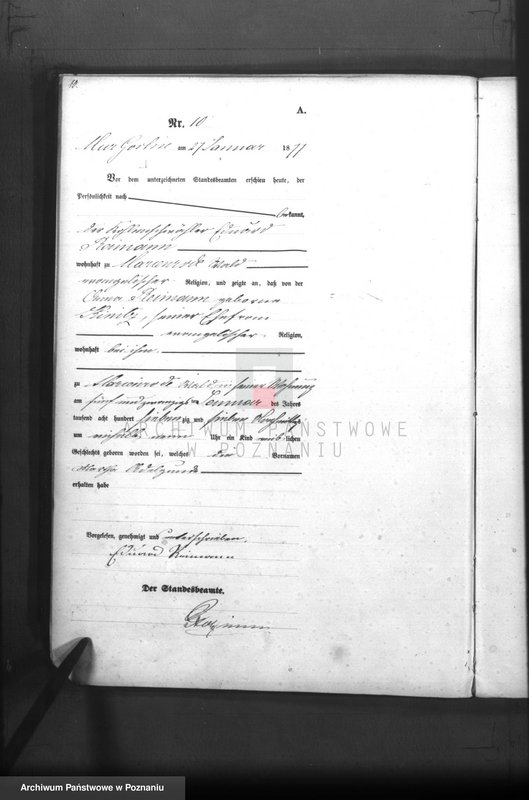 10.
A.
Nr. 10
Mur Goslin am 27 Januar 1877
Vor dem unterzeichneten Standesbeamten erschien heute, der
Persönlichkeit nach
bekannt,
der Eduard
Reimann
wohnhaft zu Marienrode Wald
evangelischer Religion, und zeigte an, daß von der
Anna Reimann geborene
seiner Ehefrau
evangelischer Religion,
wohnhaft bei ihm
zu Marienrode Wald in seiner Wohnung
am fünfundzwanzigsten Januar des Jahres
tausend acht hundert siebenzig und sieben Vormittags
um neun Uhr ein Kind weiblichen
Geschlechts geboren worden sei, welches die Vornamen
Adelgunde
erhalten habe
Vorgelesen, genehmigt und unterschrieben.
Eduard Reimann
Der Standesbeamte.
ARCHIWUM PAŃSTWOWE
W POZNANIU
Archiwum Państwowe w Poznaniu